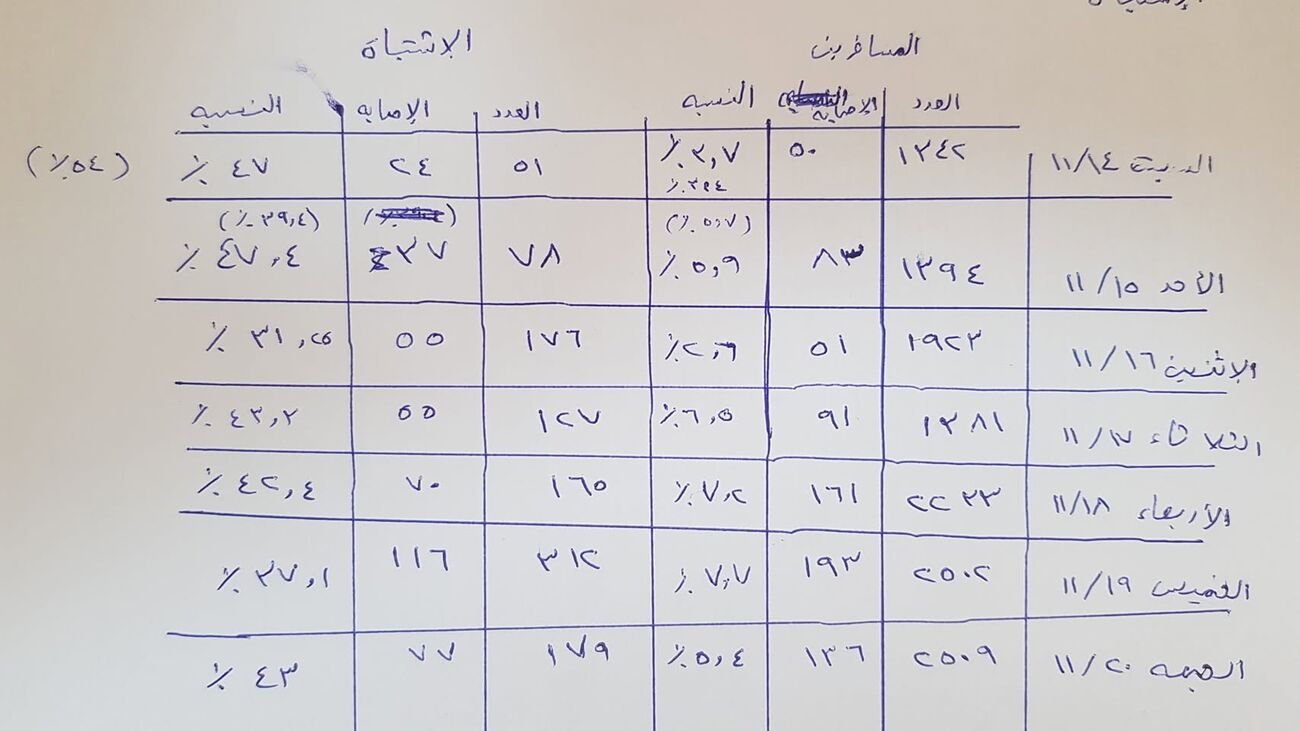 المسافرين الإشتباة
العدد الإصابه النسبه العدد الإصابه النسبه
السبت ١١/١٤ ١٣٤٢ ٥٠ ٣,٧٪ ٥١ ٢٤ ٤٧٪ (٥٤٪)
(٥,٧٪) (٣٩,٤٪)
الأحد ١١/١٥ ١٣٩٤ ٨٣ ٥,٩٪ ٧٨ ٣٧ ٤٧,٤٪
الإثنين ١١/١٦ ١٩٢٣ ٥١ ٢,٦٪ ١٧٦ ٥٥ ٣١,٢٥٪
الثلاثاء ١١/١٧ ١٣٨١ ٩١ ٦,٥٪ ١٢٧ ٥٥ ٤٣,٢٪
الأربعاء ١١/١٨ ٢٢٣٣ ١٦١ ٧,٢٪ ١٦٥ ٧٠ ٤٢,٤٪
الخميس ١١/١٩ ٢٥٠٢ ١٩٣ ٧,٧٪ ٣١٢ ١١٦ ٣٧,١٪
الجمعه ١١/٢٠ ٢٥٠٩ ١٣٦ ٥,٤٪ ١٧٩ ٧٧ ٤٣٪